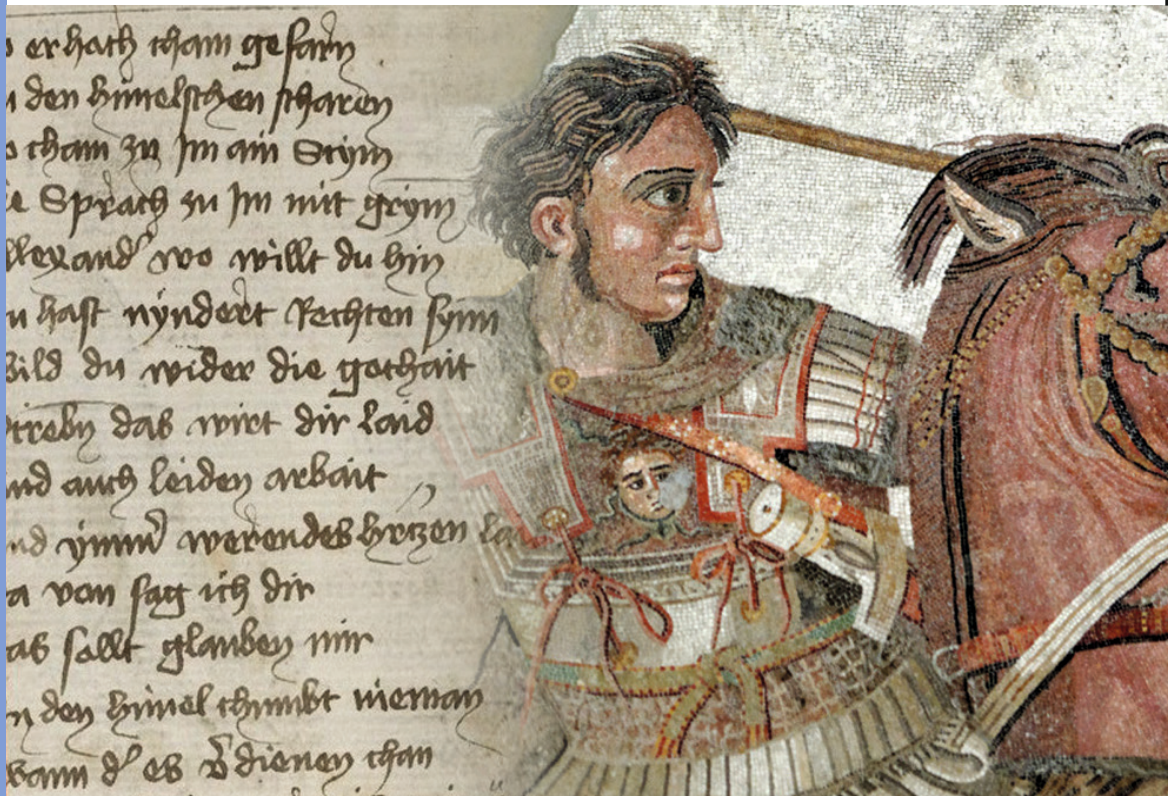 er hoch cham gefarn
den himelschen scharen
cham zu Im ain Stym
Sprach zu Im mit grym
llexand' wo willt du hin
hast nyndert Rechten synn
wild du wider die gothait
streby das wirt dir laid
nd auch leiden arbait
nd ymm' werendes hrczen
a von sag ich dir
as sollt glauben mir
n den himel chumbt nieman
wann d' es v'dienen chan